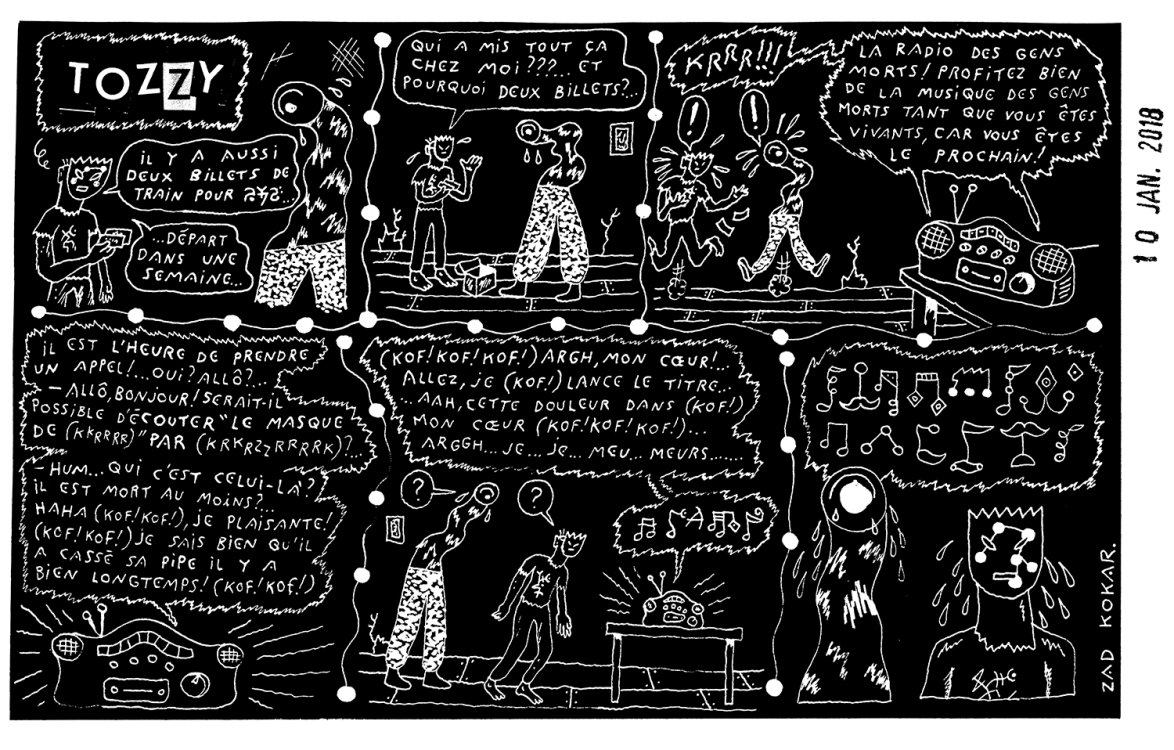 TOZZY
iL Y A AUSSi
DEUX BiLLETS DE
TRAiN POUR
...DÉPART
DANS UNE
SEMAiNE...
QUi A MiS TOUT ÇA
CHEZ MOi???... ET
POURQUOi DEUX BiLLETS?..
KRRR!!!
!
!
LA RADiO DES GENS
MORTS! PROFiTEZ BiEN
DE LA MUSiQUE DES GENS
MORTS TANT QUE VOUS ÊTES
ViVANTS, CAR VOUS ÊTES
LE PROCHAiN!
iL EST L'HEURE DE PRENDRE
UN APPEL!...OUi? ALLÔ?...
— ALLÔ, BONJOUR! SERAiT-iL
POSSiBLE D'ÉCOUTER "LE MASQUE
DE (KKRRRR)" PAR (KRKRZZRRRRRK)?...
- HUM... QUi C'EST CELUi-LÀ?
iL EST MORT AU MOiNS?...
HAHA (KOF! KOF!), JE PLAiSANTE!
(KOF! KOF!) JE SAiS BiEN QU'iL
A CASSÉ SA PiPE iL Y A
BiEN LONGTEMPS! (KOF! KOF!)
(KOF! KOF! KOF!) ARGH, MON CŒUR!...
ALLEZ, JE (KOF!) LANCE LE TiTRE...
...AAH, CETTE DOULEUR DANS (KOF!)
MON CŒUR (KOF! KOF! KOF!)...
ARGGH... JE... JE... MEU... MEURS......
?
?
ZAD KOKAR.
10 JAN. 2018